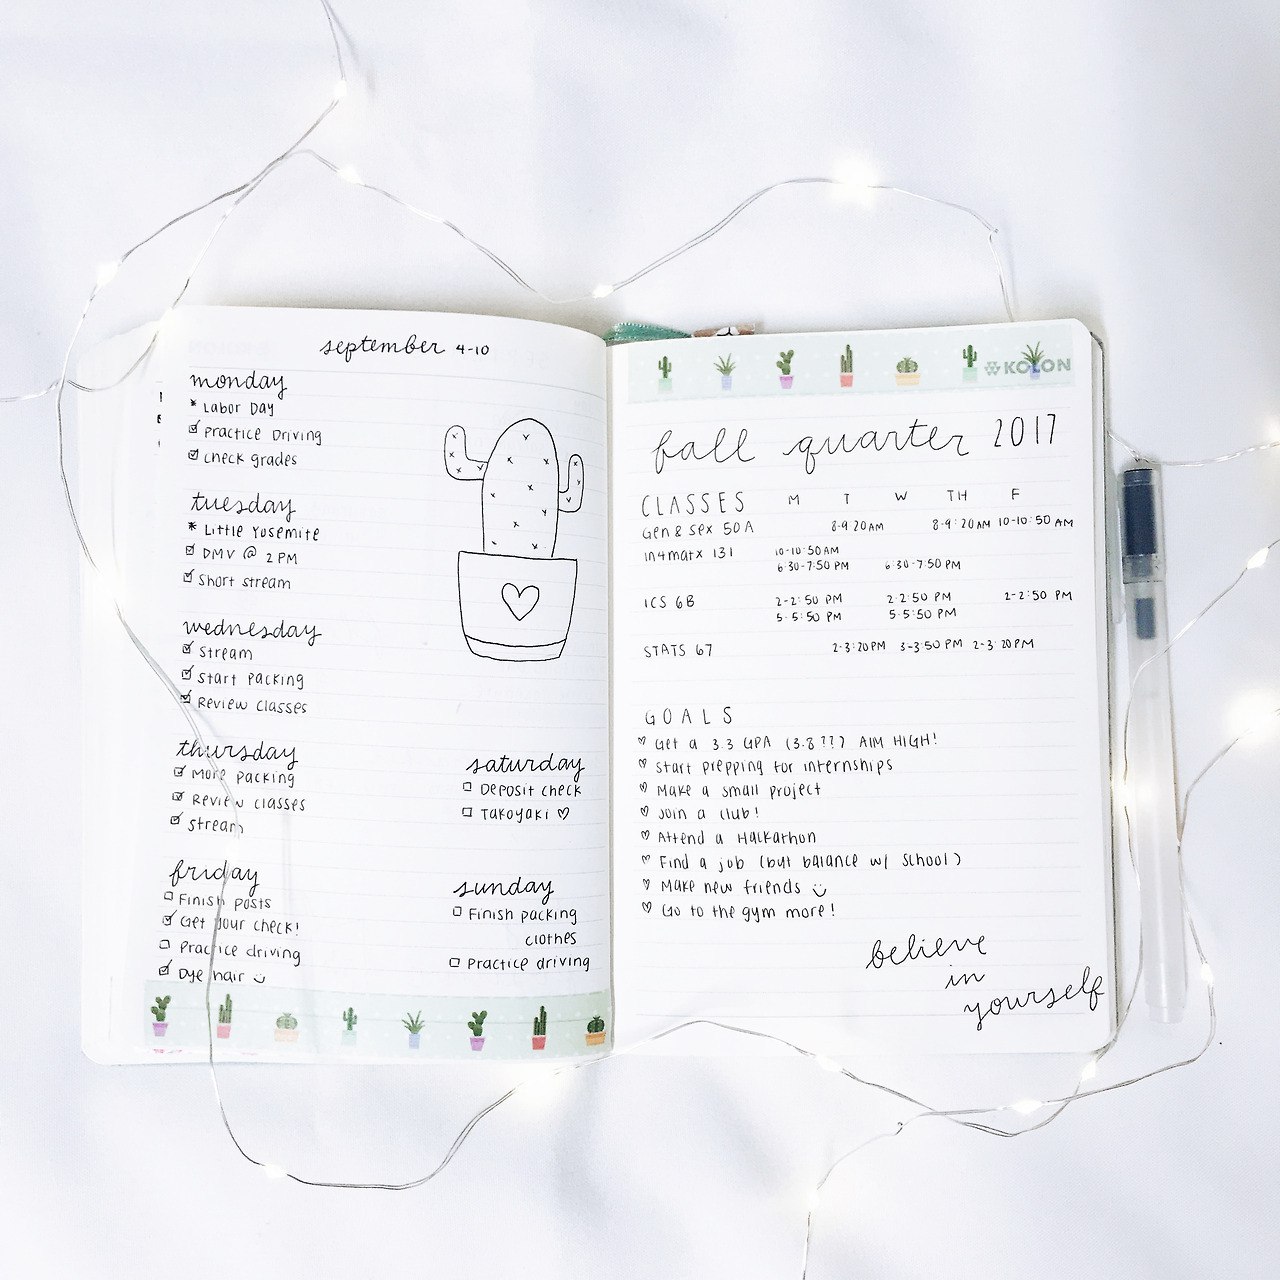 september 4-10
monday
* Labor Day
Practice Driving
Check grades
tuesday
* Little Yosemite
DMV @ 2 PM
Short stream
wednesday
Stream
Start packing
Review classes
thursday
More packing
Review classes
Stream
friday
Finish posts
Get your check!
Practice driving
Dye hair
saturday
Deposit check
Takoyaki ♡
sunday
Finish packing
clothes
Practice driving
KOLON
fall quarter 2017
CLASSES M T W TH F
Gen & Sex 50A 8-9:20 AM 8-9:20 AM 10-10:50 AM
In4matx 131 10-10:50 AM
6:30-7:50 PM 6:30-7:50 PM
ICS 6B 2-2:50 PM 2-2:50 PM 2-2:50 PM
5-5:50 PM 5-5:50 PM
STATS 67 2-3:20 PM 3-3:50 PM 2-3:20 PM
GOALS
♡ Get a 3.3 GPA (3.8???) AIM HIGH!
♡ Start prepping for internships
♡ Make a small project
♡ Join a club!
♡ Attend a Hackathon
♡ Find a job (but balance w/ school)
♡ Make new friends
♡ Go to the gym more!
believe
in
yourself